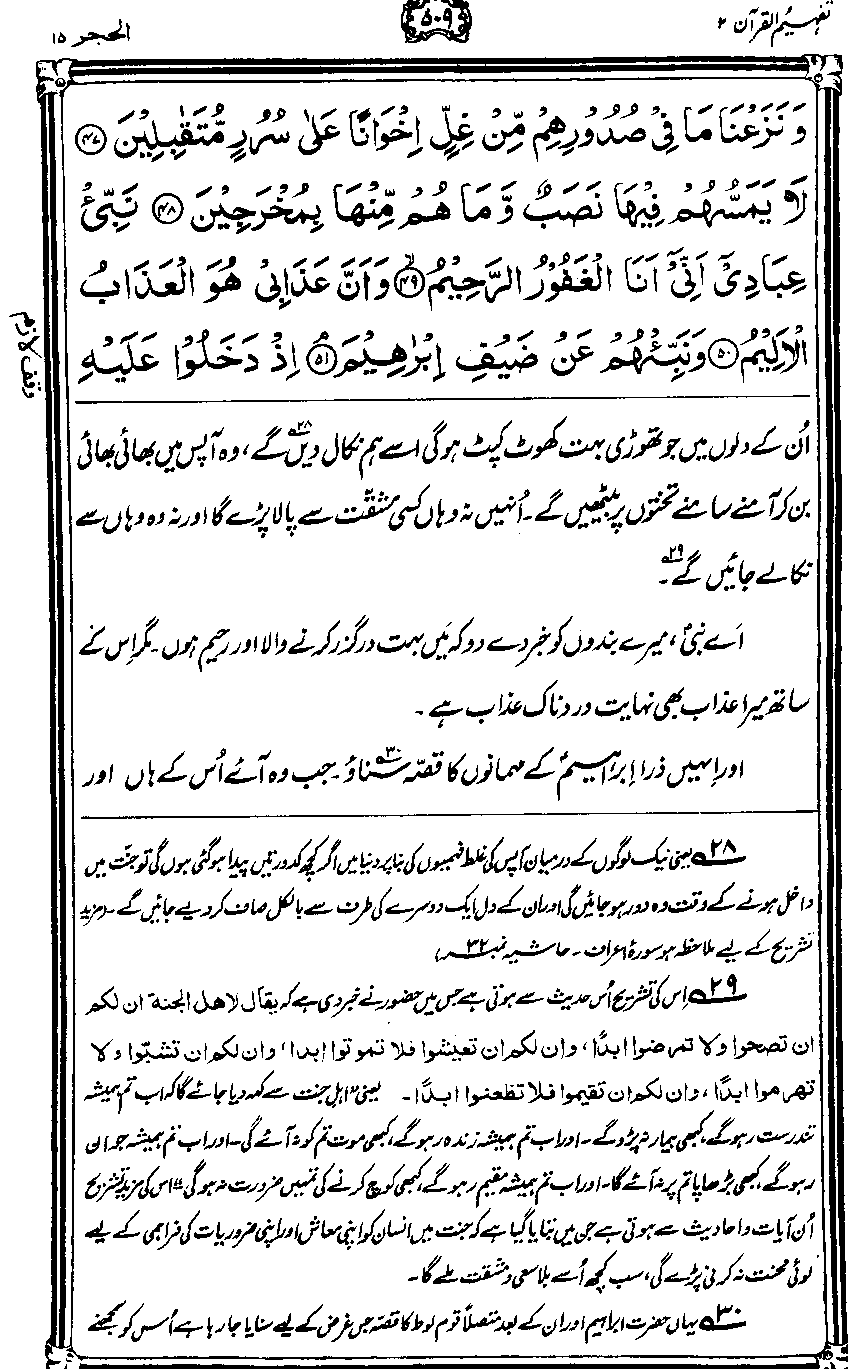 تفہیم القرآن ۲
۵۰۹
الحجر ۱۵
وَ نَزَعْنَا مَا فِیْ صُدُوْرِهِمْ مِّنْ غِلٍّ اِخْوَانًا عَلٰى سُرُرٍ مُّتَقٰبِلِیْنَ ﴿۴۷﴾
لَا یَمَسُّهُمْ فِیْهَا نَصَبٌ وَّ مَا هُمْ مِّنْهَا بِمُخْرَجِیْنَ ﴿۴۸﴾ نَبِّئْ
عِبَادِیْۤ اَنِّیْۤ اَنَا الْغَفُوْرُ الرَّحِیْمُ ﴿۴۹﴾ وَ اَنَّ عَذَابِیْ هُوَ الْعَذَابُ
الْاَلِیْمُ ﴿۵۰﴾ وَ نَبِّئْهُمْ عَنْ ضَیْفِ اِبْرٰهِیْمَ ﴿۵۱﴾ اِذْ دَخَلُوْا عَلَیْهِ
وقف لازم
اُن کے دلوں میں جو تھوڑی بہت کھوٹ کپٹ ہوگی اسے ہم نکال دیں گے،۲۸ وہ آپس میں بھائی بھائی
بن کر آمنے سامنے تختوں پر بیٹھیں گے۔ اُنہیں نہ وہاں کسی مشقّت سے پالا پڑے گا اور نہ وہ وہاں سے
نکالے جائیں گے۲۹۔
اَے نبیؐ، میرے بندوں کو خبر دے دو کہ مَیں بہت درگزر کرنے والا اور رحیم ہوں۔ مگر اِس کے
ساتھ میرا عذاب بھی نہایت دردناک عذاب ہے۔
اور اِنہیں ذرا اِبراہیمؑ کے مہمانوں کا قصّہ۳۰ سُناؤ۔ جب وہ آئے اُس کے ہاں اور
۲۸ یعنی نیک لوگوں کے درمیان آپس کی غلط فہمیوں کی بنا پر دنیا میں اگر کچھ کدورتیں پیدا ہوگئی ہوں گی تو جنّت میں
داخل ہونے کے وقت وہ دور ہو جائیں گی اور ان کے دل ایک دوسرے کی طرف سے بالکل صاف کر دیے جائیں گے۔ (مزید
تشریح کے لیے ملاحظہ ہو سورۂ اعراف۔ حاشیہ نمبر ۳۲)
۲۹ اِس کی تشریح اُس حدیث سے ہوتی ہے جس میں حضور نے خبر دی ہے کہ یقال لاهل الجنة ان لکم
ان تصحوا ولا تمرضوا ابدًا، وان لکم ان تعیشوا فلا تموتوا ابدا، وان لکم ان تشبّوا ولا
تهرموا ابدًا، وان لکم ان تقیموا فلا تظعنوا ابدًا۔ یعنی ”اہل جنت سے کہہ دیا جائے گا کہ اب تم ہمیشہ
تندرست رہو گے، کبھی بیمار نہ پڑو گے۔ اور اب تم ہمیشہ زندہ رہو گے، کبھی موت تم کو نہ آئے گی۔ اور اب تم ہمیشہ جوان
رہو گے، کبھی بڑھاپا تم پر نہ آئے گا۔ اور اب تم ہمیشہ مقیم رہو گے، کبھی کوچ کرنے کی تمہیں ضرورت نہ ہوگی“ اس کی مزید تشریح
اُن آیات و احادیث سے ہوتی ہے جن میں بتایا گیا ہے کہ جنت میں انسان کو اپنی معاش اور اپنی ضروریات کی فراہمی کے لیے
کوئی محنت نہ کرنی پڑے گی، سب کچھ اُسے بلا سعی و مشقت ملے گا۔
۳۰ یہاں حضرت ابراہیم اور ان کے بعد متصلاً قوم لوط کا قصّہ جس غرض کے لیے سنایا جا رہا ہے اُس کو سمجھنے